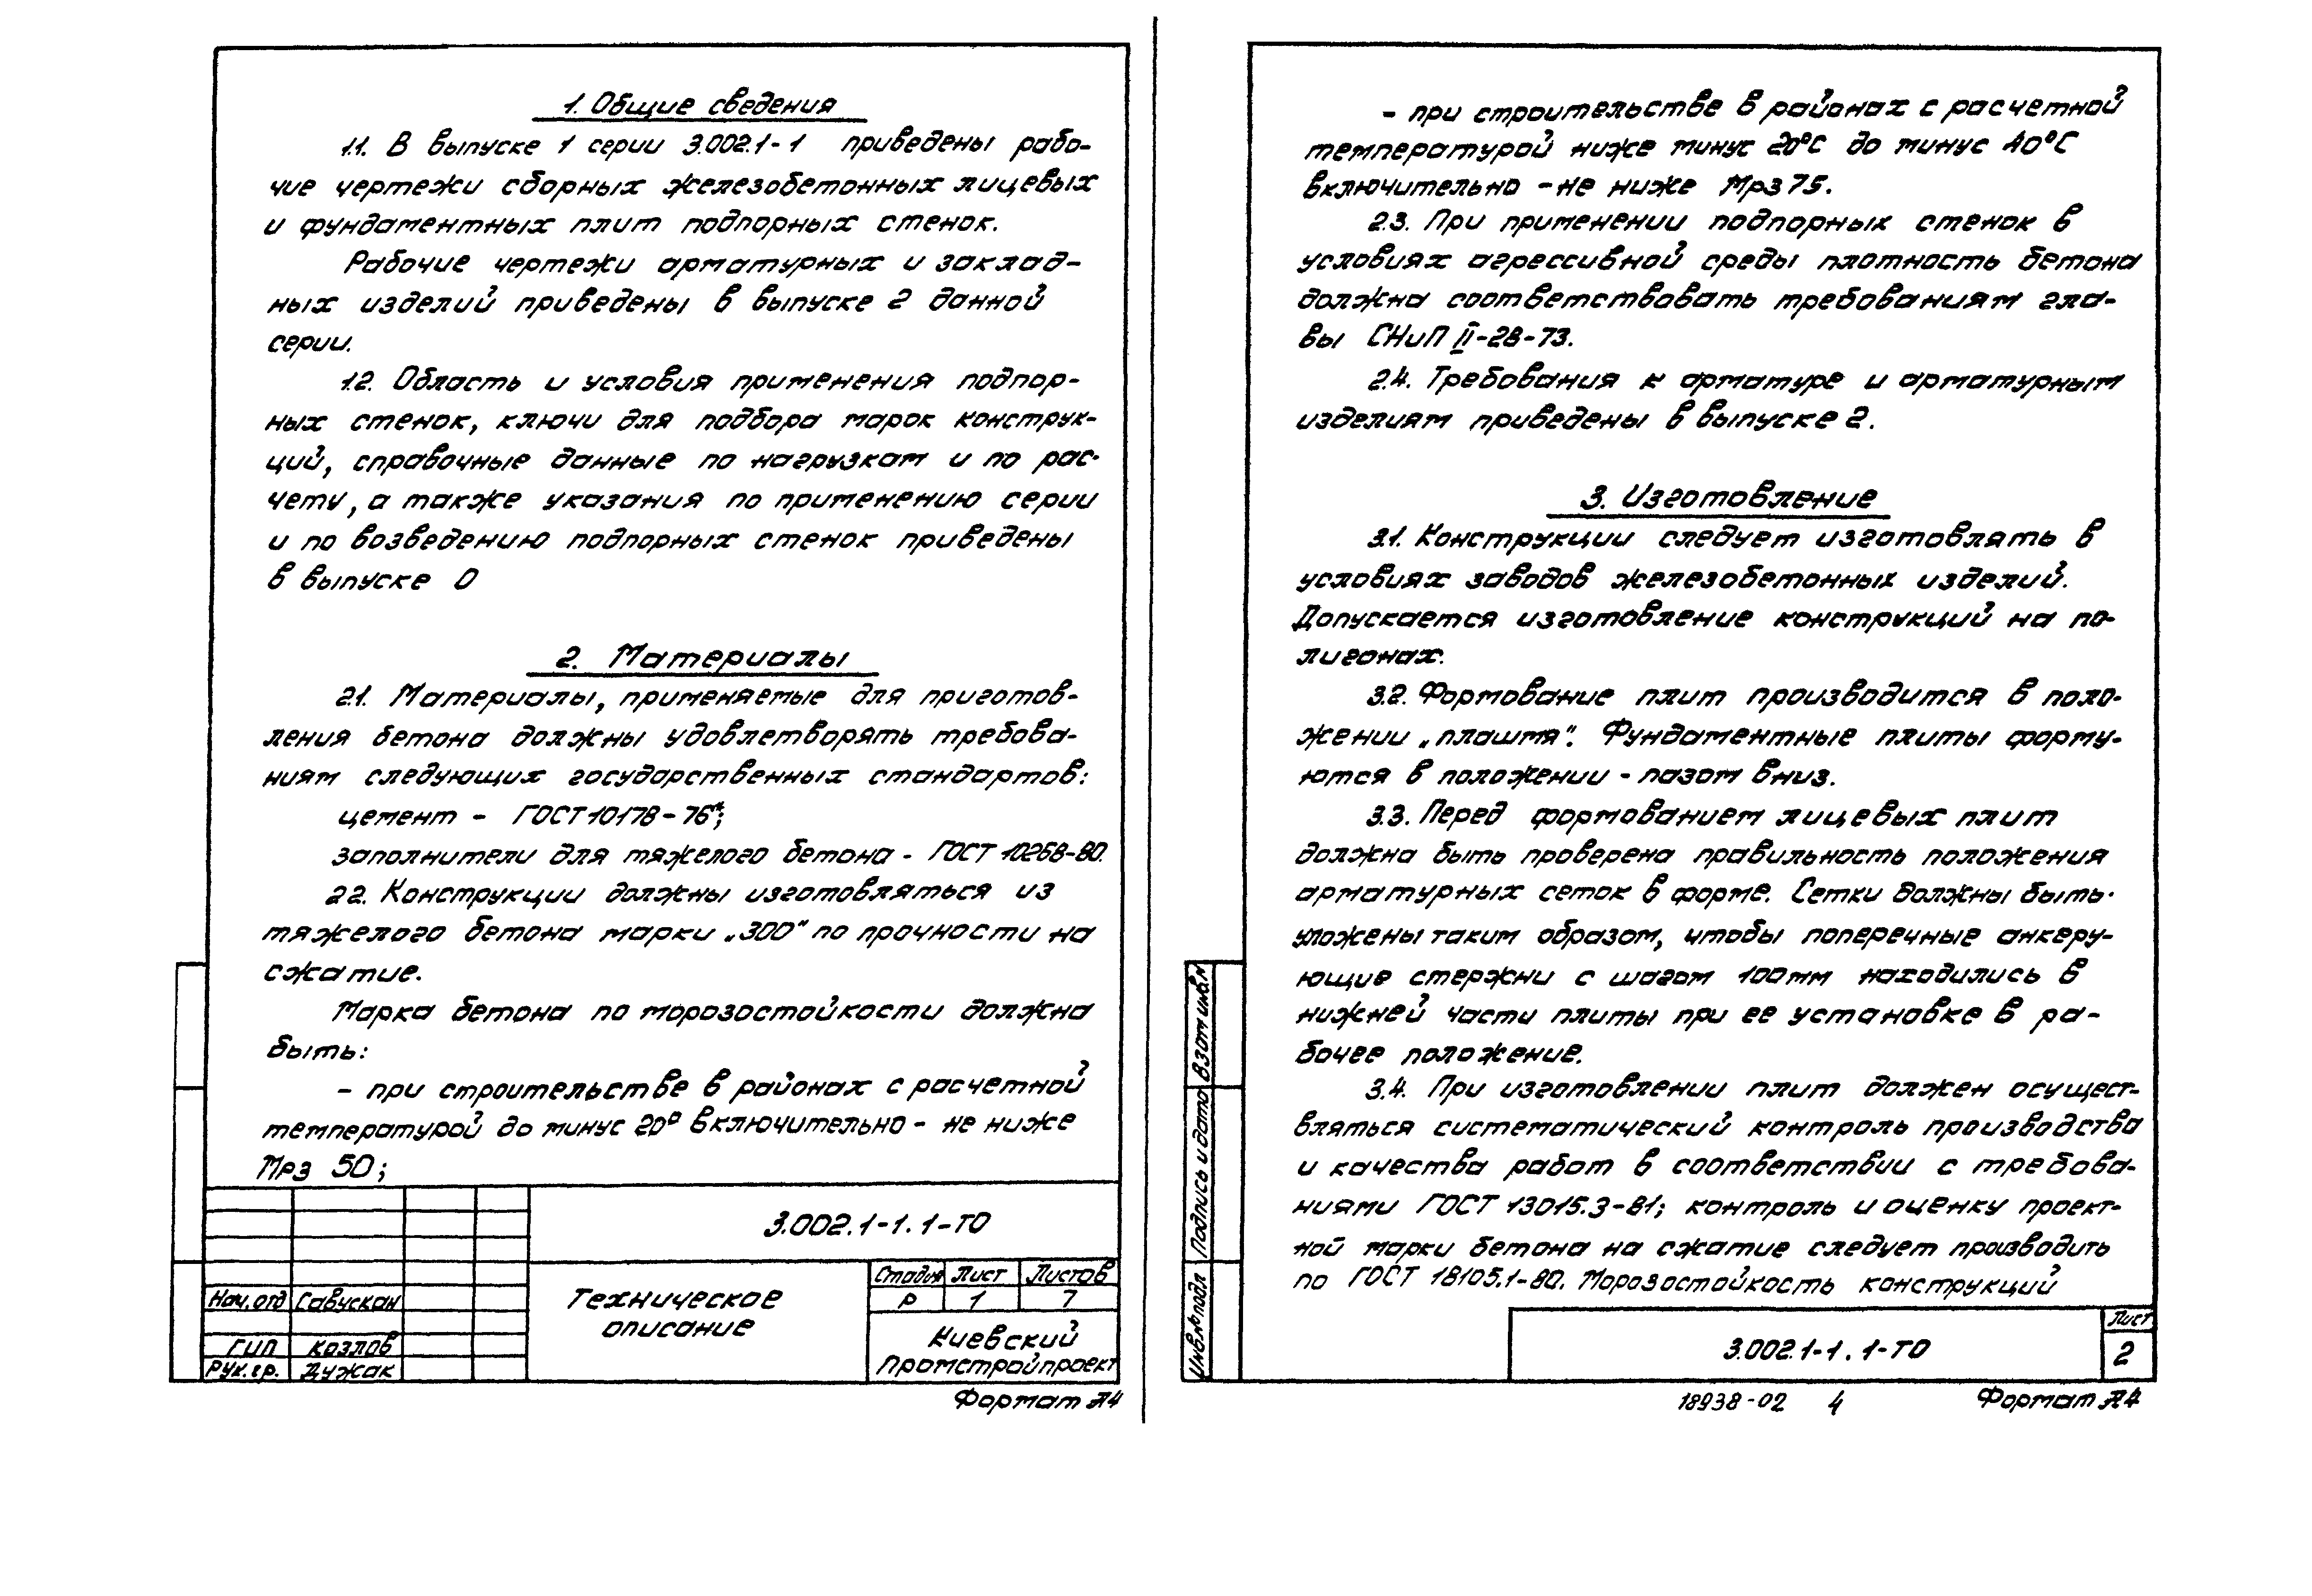 1. Общие сведения
1.1. В выпуске 1 серии 3.002.1-1 приведены рабо-
чие чертежи сборных железобетонных лицевых
и фундаментных плит подпорных стенок.
Рабочие чертежи арматурных и заклад-
ных изделий приведены в выпуске 2 данной
серии.
1.2. Область и условия применения подпор-
ных стенок, ключи для подбора марок конструк-
ций, справочные данные по нагрузкам и по рас-
чету, а также указания по применению серии
и по возведению подпорных стенок приведены
в выпуске 0
2. Материалы
2.1. Материалы, применяемые для приготов-
ления бетона должны удовлетворять требова-
ниям следующих государственных стандартов:
цемент - ГОСТ 10178-76*;
заполнители для тяжелого бетона - ГОСТ 10268-80.
2.2. Конструкции должны изготовляться из
тяжелого бетона марки „300“ по прочности на
сжатие.
Марка бетона по морозостойкости должна
быть:
- при строительстве в районах с расчетной
температурой до минус 20° включительно - не ниже
Мрз 50;
3.002.1-1.1-ТО
Нач.отд Савускан
ГИП Козлов
Рук.гр. Дужак
Техническое
описание
Стадия Лист Листов
Р 1 7
Киевский
Промстройпроект
Формат А4
- при строительстве в районах с расчетной
температурой ниже минус 20°С до минус 40°С
включительно - не ниже Мрз 75.
2.3. При применении подпорных стенок в
условиях агрессивной среды плотность бетона
должна соответствовать требованиям гла-
вы СНиП II-28-73.
2.4. Требования к арматуре и арматурным
изделиям приведены в выпуске 2.
3. Изготовление
3.1. Конструкции следует изготовлять в
условиях заводов железобетонных изделий.
Допускается изготовление конструкций на по-
лигонах.
3.2. Формование плит производится в поло-
жении „плашмя“. Фундаментные плиты форму-
ются в положении - пазом вниз.
3.3. Перед формованием лицевых плит
должна быть проверена правильность положения
арматурных сеток в форме. Сетки должны быть
уложены таким образом, чтобы поперечные анкеру-
ющие стержни с шагом 100мм находились в
нижней части плиты при ее установке в ра-
бочее положение.
3.4. При изготовлении плит должен осущест-
вляться систематический контроль производства
и качества работ в соответствии с требова-
ниями ГОСТ 13015.3-81; контроль и оценку проект-
ной марки бетона на сжатие следует производить
по ГОСТ 18105.1-80. Морозостойкость конструкций
Инв.№подл Подпись и дата Взам инв.№
3.002.1-1.1-ТО
Лист
2
18938-02 4 Формат А4